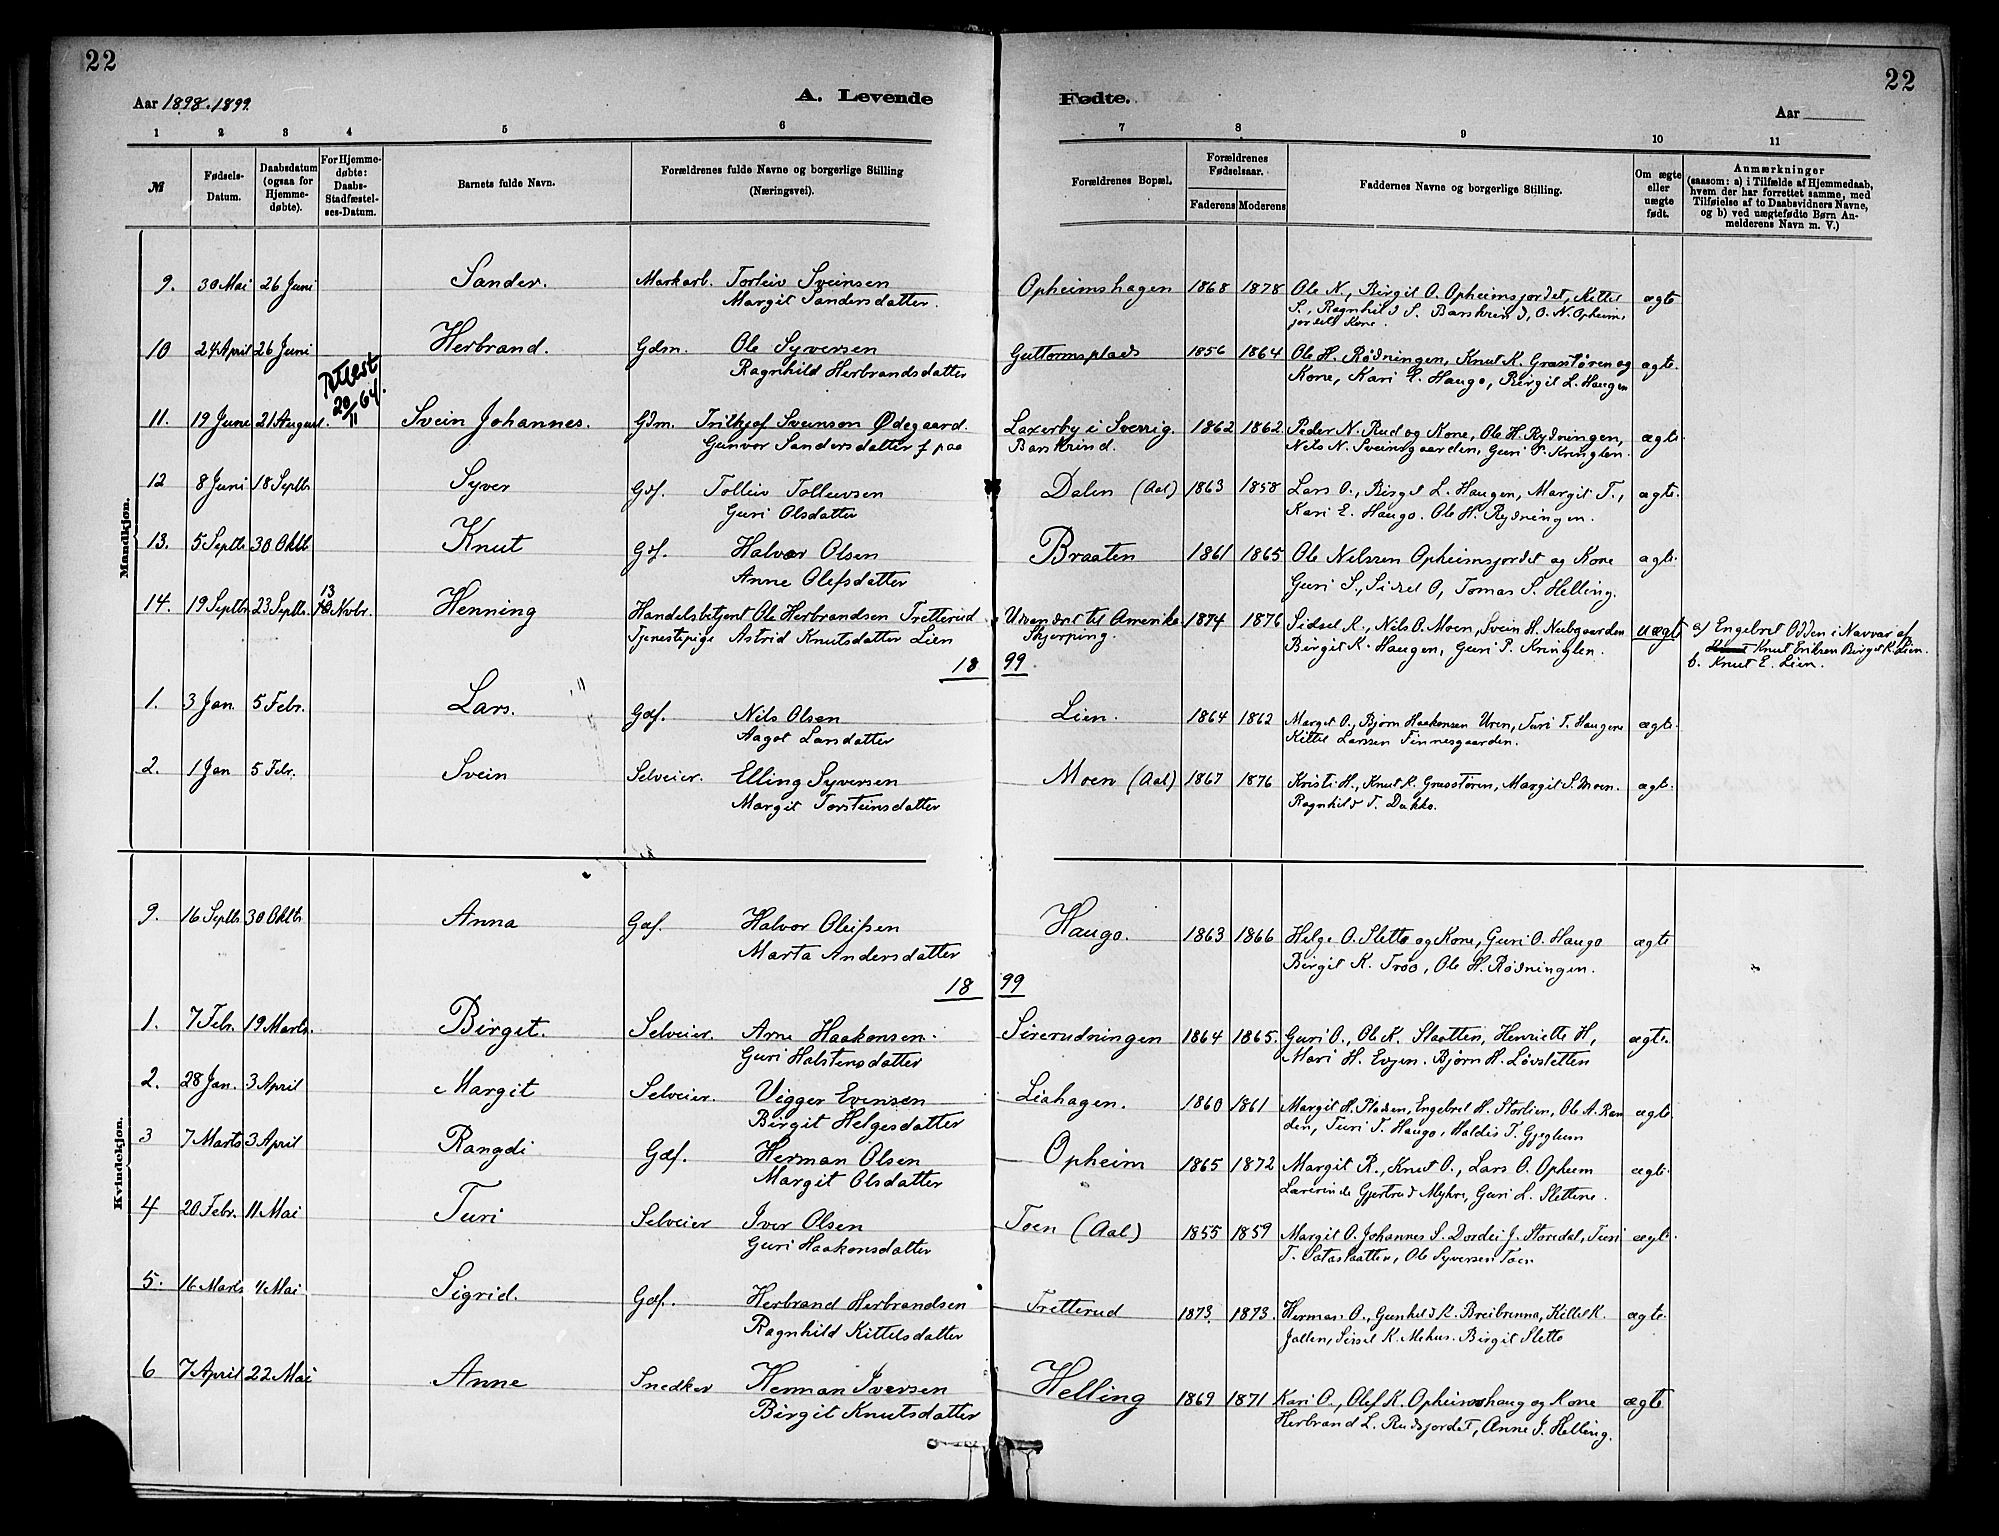 22
22
Aar 1898.1899.
A. Levende
Fødte.
Aar
1 2 3 4 5 6 7 8 9 10 11
№
Fødsels-
Datum.
Daabsdatum
(ogsaa for
Hjemme-
døbte).
For Hjemme-
døbte:
Daabs-
Stadfæstel-
ses-Datum.
Barnets fulde Navn.
Forældrenes fulde Navne og borgerlige Stilling
(Næringsvei).
Forældrenes Bopæl.
Forældrenes
Fødselsaar.
Faderens Moderens
Faddernes Navne og borgerlige Stilling.
Om ægte
eller
uægte
født.
Anmærkninger
(saasom: a) i Tilfælde af Hjemmedaab,
hvem der har forrettet samme, med
Tilføielse af to Daabsvidners Navne,
og b) ved uægtefødte Børn An-
melderens Navn m. V.)
Mandkjøn.
9. 30 Mai 26 Juni Sander. Markarb. Torleiv Sveinsen Opheimshagen 1868 1878 Ole N., Birgit O. Opheimsjordet, Kittil ægte
Margit Sandersdatter. S., Ragnhild S. Barskrind, O. N. Opheims
jordets Kone.
10 24 April 26 Juni Herbrand. Gdm. Ole Syversen Guttormsplads 1856 1864 Ole H. Rødningen, Knut K. Grasstøren og ægte.
Ragnhild Herbrandsdatter Kone, Kari E. Haugo, Birgit L. Haugen
Attest
20/11 64.
11. 19 June 21 August. Svein Johannes. Gdm. Frithjof Sveinson Ødegaard. Laxerby i Sverrig. 1862 1862 Peder N. Rud og Kone, Ole H. Rydningen, ægte
Gunvor Sandersdatter f paa Barskrind. Nils N. Sveinsgaarden, Guri P. Kringlen.
12 8 Juni 18 Septbr Syver Gdf. Tolleiv Tolleivsen Dalen (Aal) 1863 1858 Lars O., Birget L. Haugen, Margit T., ægte.
Guri Olsdatter Kari E. Haugo. Ole H. Rydningen.
13. 5 Septbr 30 Oktb Knut Gdf. Halvor Olsen Braaten 1861 1865 Ole Nelssen Opheimsjordet og Kone ægte.
Anne Olefsdatter Guri S., Sidsel O, Tomas S. Helling.
14. 19 Septbr. 23 Septbr. 13 Novbr. Henning Handelsbetjent Ole Herbrandsen Tretterud Udvandret til Amerika 1874 1876 Sidsel K., Nils O. Moen, Svein H. Neibgaarden uægte a) Engebret Odden i Nærvær af
Tjenestepige Astrid Knutsdatter Lien Skjerping. Birgit K. Haugen, Guri P. Kringlen. Knut Eriksen Birget K. Lien.
b. Knut E. Lien.
18 99
1. 3 Jan. 5 Febr. Lars. Gdf. Nils Olsen Lien. 1864 1862 Marget O., Bjørn Haakonsen Uren, Turi T. Haugene ægte.
Aagot Larsdatter Kittel Larssen Finnesgaarden.
2. 1 Jan 5 Febr. Svein Selveier. Elling Syversen Moen (Aal) 1867 1876 Kristi H., Knut K. Grasstøren, Margit S. Moen. ægte.
Margit Torsteinsdatter Ragnhild T. Dakko.
Kvindekjøn.
9. 16 Septbr 30 Oktbr Anna Gdf. Halvor Oleifsen Haugo. 1863 1866 Helge O. Sletto og Kone, Guri O. Haugo ægte
Marta Andersdatter Birgit K. Troo, Ole H. Rødningen.
18 99
1. 7 Febr. 19 Marts. Birgit. Selveier. Arne Haakonsen. Sirerudningen 1864 1865. Guri O., Ole K. Staatten, Henriette H, ægte.
Guri Halstensdatter Mari H. Evjen. Bjørn H. Løvsletten
2. 28 Jan. 3 April Margit Selveier. Vigger Evensen Liahagen. 1860 1861 Margit H. Pladsen, Engebret H. Storlien, Ole A. Ran ægte
Birgit Helgesdatter den, Turi T. Haugo, Haldis T. Gjeglum
3 7 Marts 3 April Rangdi Gdf. Herman Olsen Opheim 1865 1872 Margit R., Knut O., Lars O. Opheim ægte
Margit Olsdatter Lærerinde Gjertrud Myhre, Guri L. Slettene.
4 20 Febr. 11 Mai Turi Selveier Iver Olsen Toen (Aal) 1855 1859 Margit O. Johannes S. Dordei J. Storedal, Turi ægte
Guri Haakonsdatter T. Sataslaatten, Ole Syversen Toen
5. 16 Marts 4 Mai Sigrid. Gdf. Herbrand Herbrandsen Tretterud 1873. 1873. Herman O., Gunhild K. Breibrenna, Kittel K. ægte.
Ragnhild Kittelsdatter Jallen, Sirsil K. Mehus. Birgit Sletto
6 7 April 22 Mai Anne Snedker Herman Iversen Helling 1869 1871 Kari O., Olef K. Opheimshaug og Kone ægte
Birgit Knutsdatter Herbrand L. Rudsjordet, Anne J. Helling.